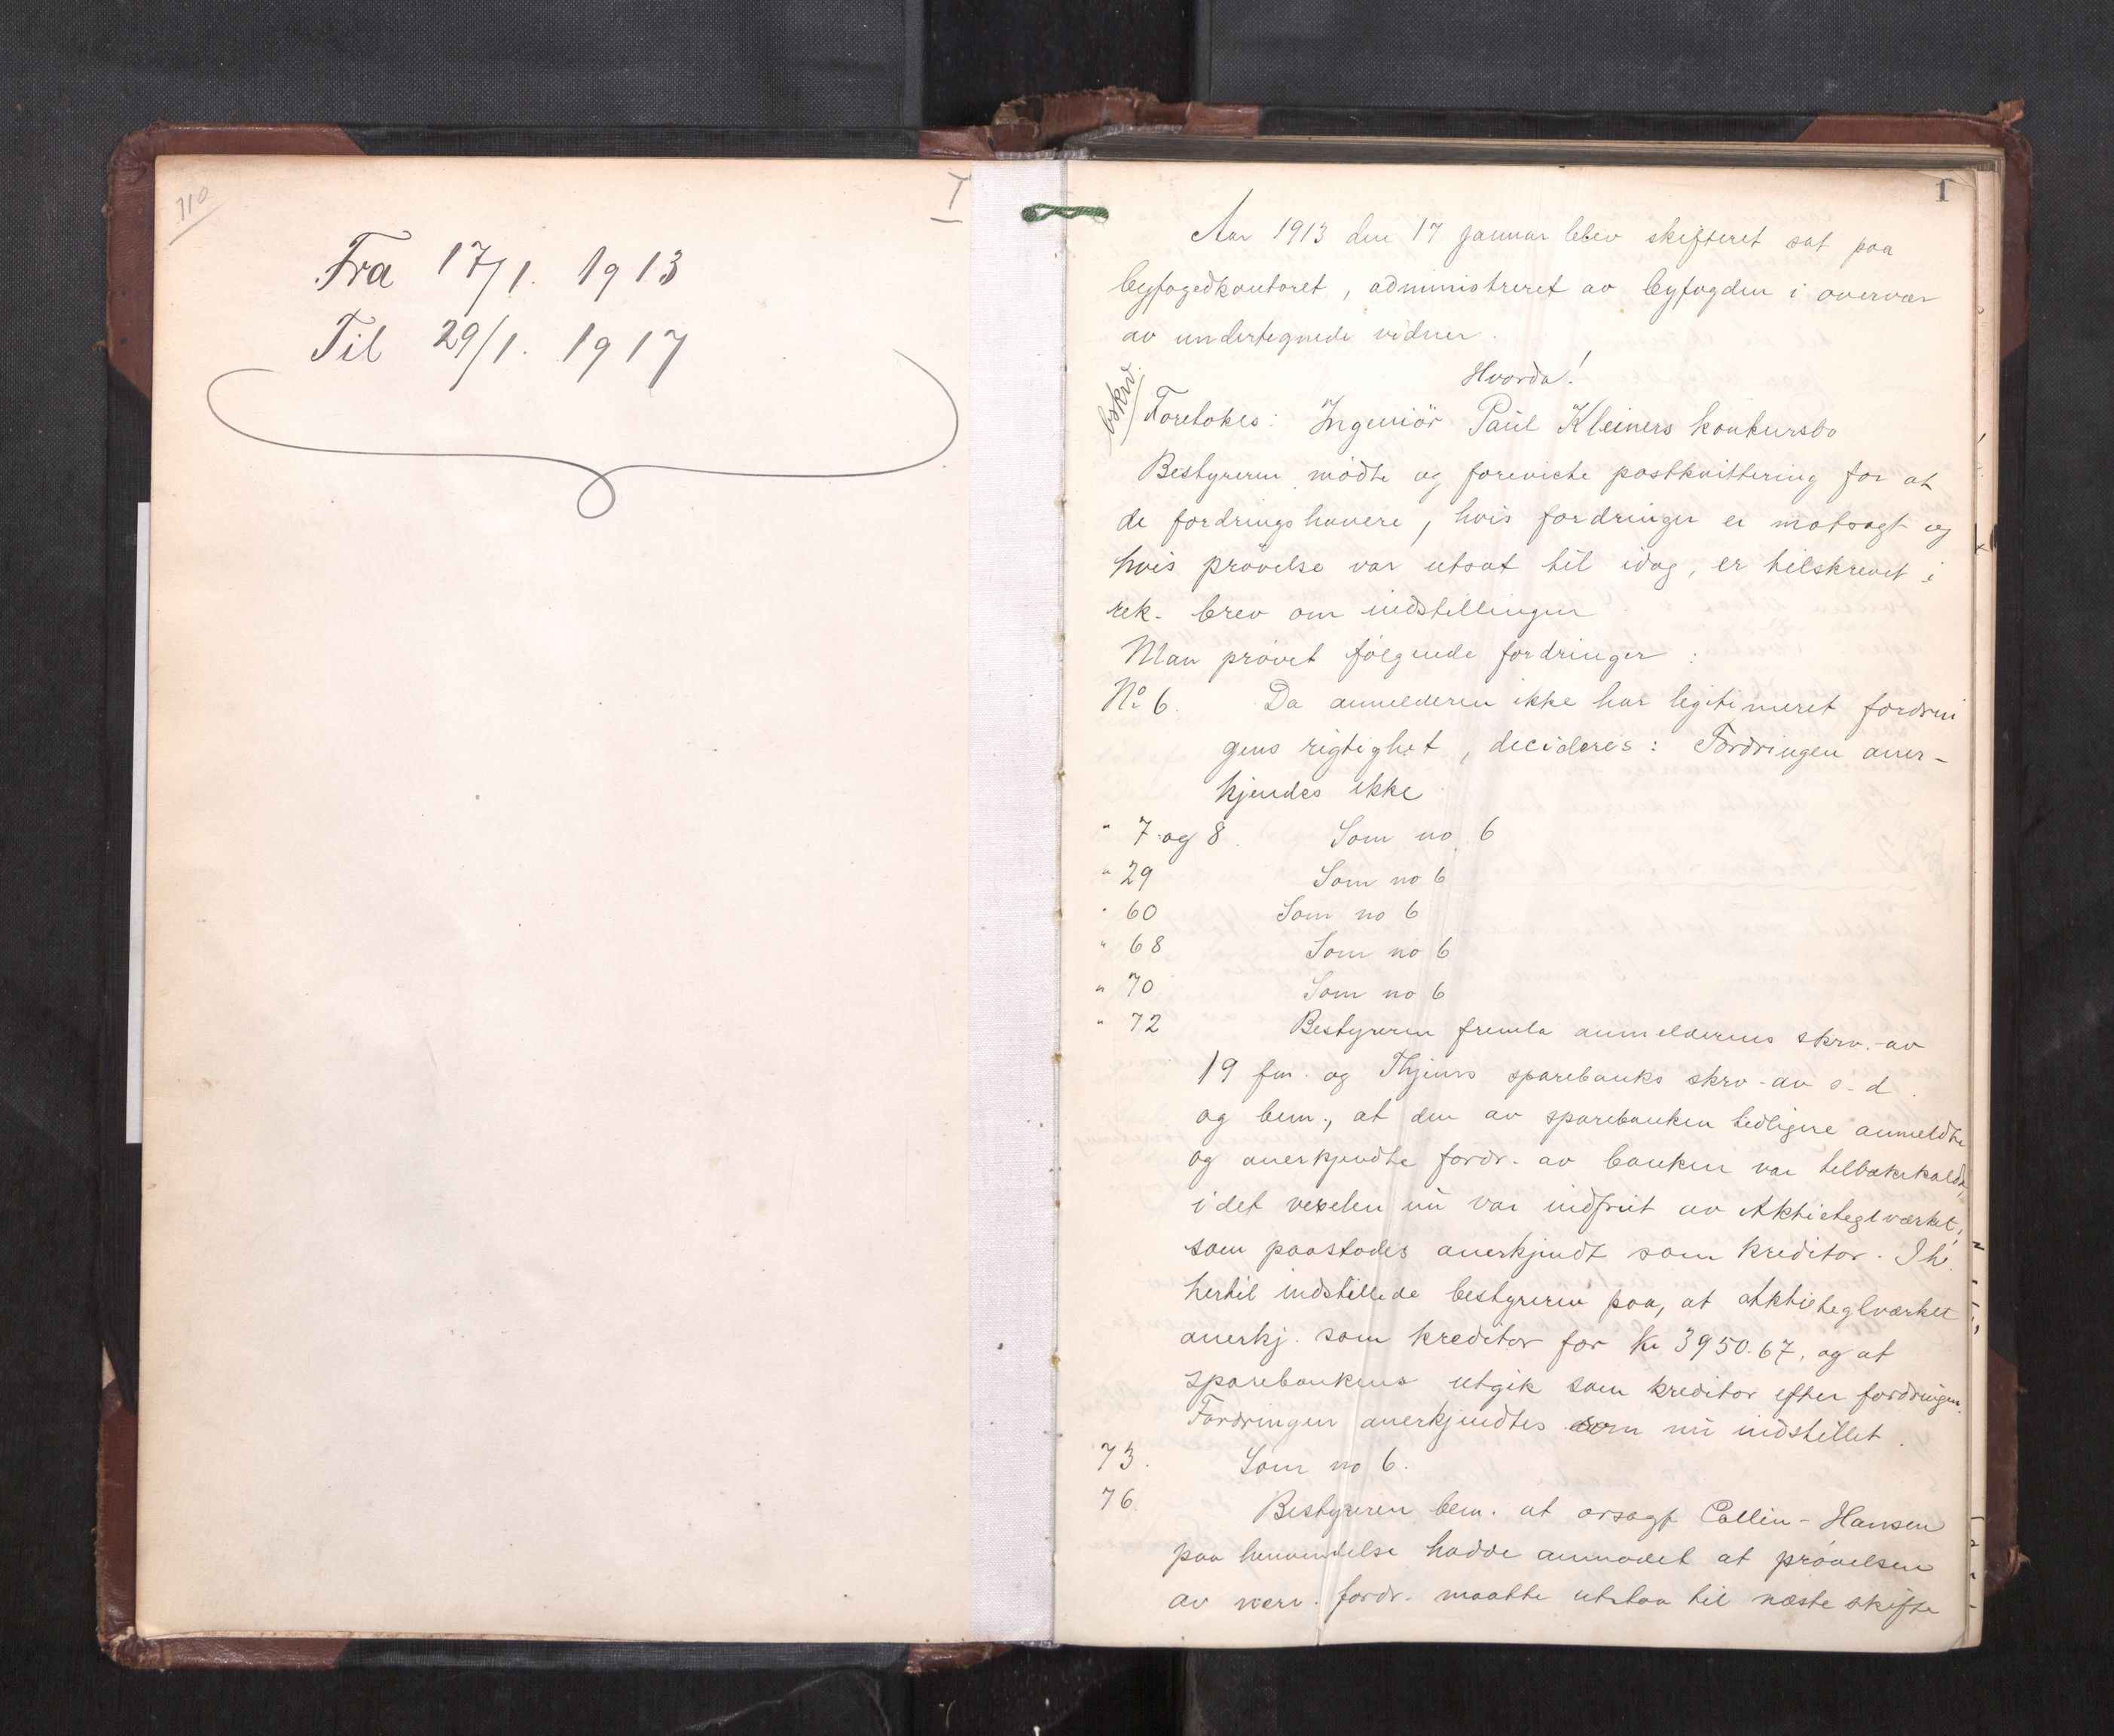 110
I
Fra 17/1. 1913
Til 29/1. 1917
1
Aar 1913 den 17 januar blev skifteret sat paa
byfogedkontoret, administreret av byfogden i overvær
av undertegnede vidner.
Hvorda!
bskrv.
Foretokes: Ingeniör Paul Kleiners konkursbo
Bestyreren mödte og foreviste postkvittering for at
de fordringshavere, hvis fordringer er motsagt og
hvis prövelse var utsat til idag, er tilskrevet i
rek. brev om indstillingen
Man prövet følgende fordringer:
No 6. Da anmelderen ikke har legitimeret fordrin
gens rigtighet, decideres: Fordringen aner-
kjendes ikke
" 7 og 8. Som no 6
" 29 Som no 6
" 60 Som no 6
" 68 Som no 6
" 70 Som no 6
" 72 Bestyreren fremla anmelderens skrv. av
19 fm. og sparebanks skrv. av s. d.
og bem., at den av sparebanken tidligere anmeldte
og anerkjendte fordr. av banken var tilbakekaldt,
idet vexelen nu var indfriet av Aktieteglværket,
som paastodes anerkjendt som kreditor. I h.
hertil indstillede bestyreren paa, at Aktieteglværket
anerkj. som kreditor for kr 3950.67, og at
sparebankens utgik som kreditor efter fordringen.
Fordringen anerkjendtes som nu indstillet.
73. Som no 6.
76. Bestyreren bem. at orsagf. Collin-Hansen
paa henvendelse hadde anmodet at prövelsen
av nærv. fordr. maatte utstaa til næste skifte